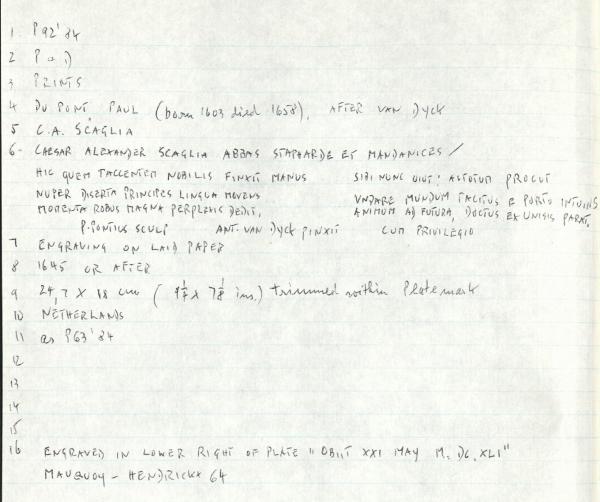 1 P92'84
2 P+D
3 PRINTS
4 DU PONT PAUL (born 1603 died 1658), AFTER VAN DYCK
5 C.A. SCAGLIA
6- CAESAR ALEXANDER SCAGLIA ABBAS STAPHARDE ET MANDANICES /
HIC QUEM TACCENTEM NOBILIS FINXIT MANUS SIBI NUNC VIVIT: ASTOTUM PROCUL
NUPER DISERTA PRINCIPES LINGUA MOVENS UNDARE MUNDUM TACITUS E PORTO INTUENS
MOMENTA ROBUS MAGNA PERPLEXIS DEDIT, ANIMUM AD FUTURA, DOCTUS EX UNISIS PARAT,
P. PONTIUS SCULP ANT. VAN DYCK PINXIT CUM PRIVILEGIO
7 ENGRAVING ON LAID PAPER
8 1645 OR AFTER
9 24,7 X 18 cm ( x 7 ins.) trimmed within Platemark
10 NETHERLANDS
11 as P63'84
12
13
14
15
16 ENGRAVED IN LOWER RIGHT OF PLATE "OBIIT XXI MAY M. DC. XLI"
MAUQUOY - HENDRICKX 64